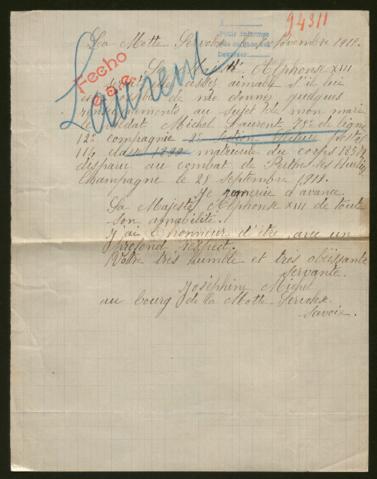 94311
La Motte Servolex Novembre 1915.
Fecho
Laurent
Sa Majesté Alphonse XIII
assez aimable s'il lui
de me donner quelques
renseignements au sujet de mon mari
soldat Michel Laurent 75e de ligne
12e compagnie
114 classe matricule du corps
disparu au combat de Perthes les Hurlus
Champagne le 25 Septembre 1915.
Je remercie d'avance
Sa Majesté Alphonse XIII de toute
son amabilité.
J'ai l'honneur d'être avec un
profond respect.
Votre très humble et très obéissante
servante.
Joséphine Michel
au bourg de la Motte Servolex
Savoie.